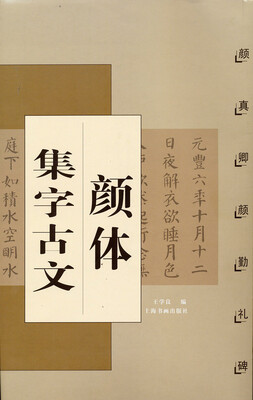 颜真卿颜勤礼碑
元豐六年十月十二
日夜解衣欲睡月色
庭下如積水空明水
颜体
集字古文
编
上海书画出版社